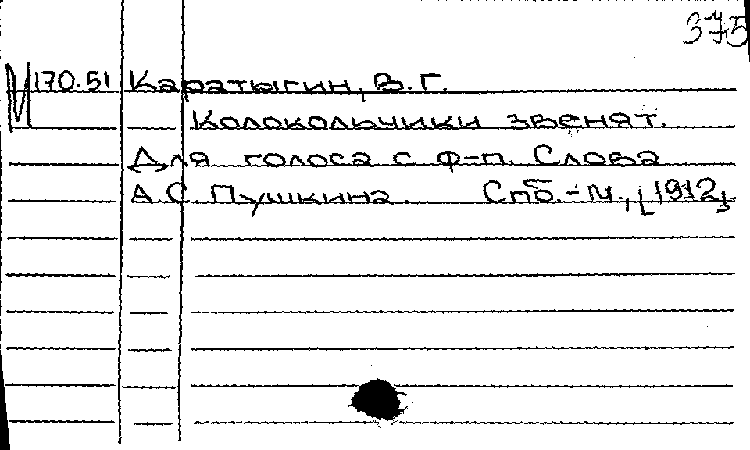 375
М 170.51 Каратыгин, В.Г.
Колокольчики звенят.
Для голоса с ф-п. Слова
А.С. Пушкина. Спб.-М., [1912]